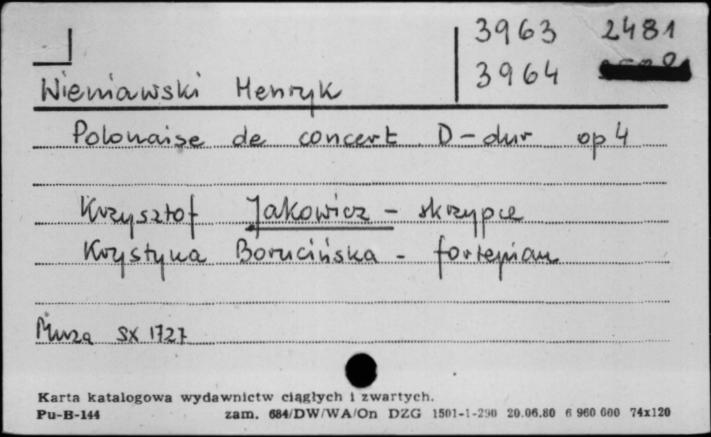 3963 2481
3964
Wieniawski Henryk
Polonaise de concert D-dur op 4
Krzysztof Jakowicz - skrzypce
Krystyna Borucińska - fortepian
Muza SX 1727
Karta katalogowa wydawnictw ciągłych i zwartych.
Pu-B-144 zam. 684/DW/WA/On DZG 1501-1-290 20.06.80 6 960 000 74x120